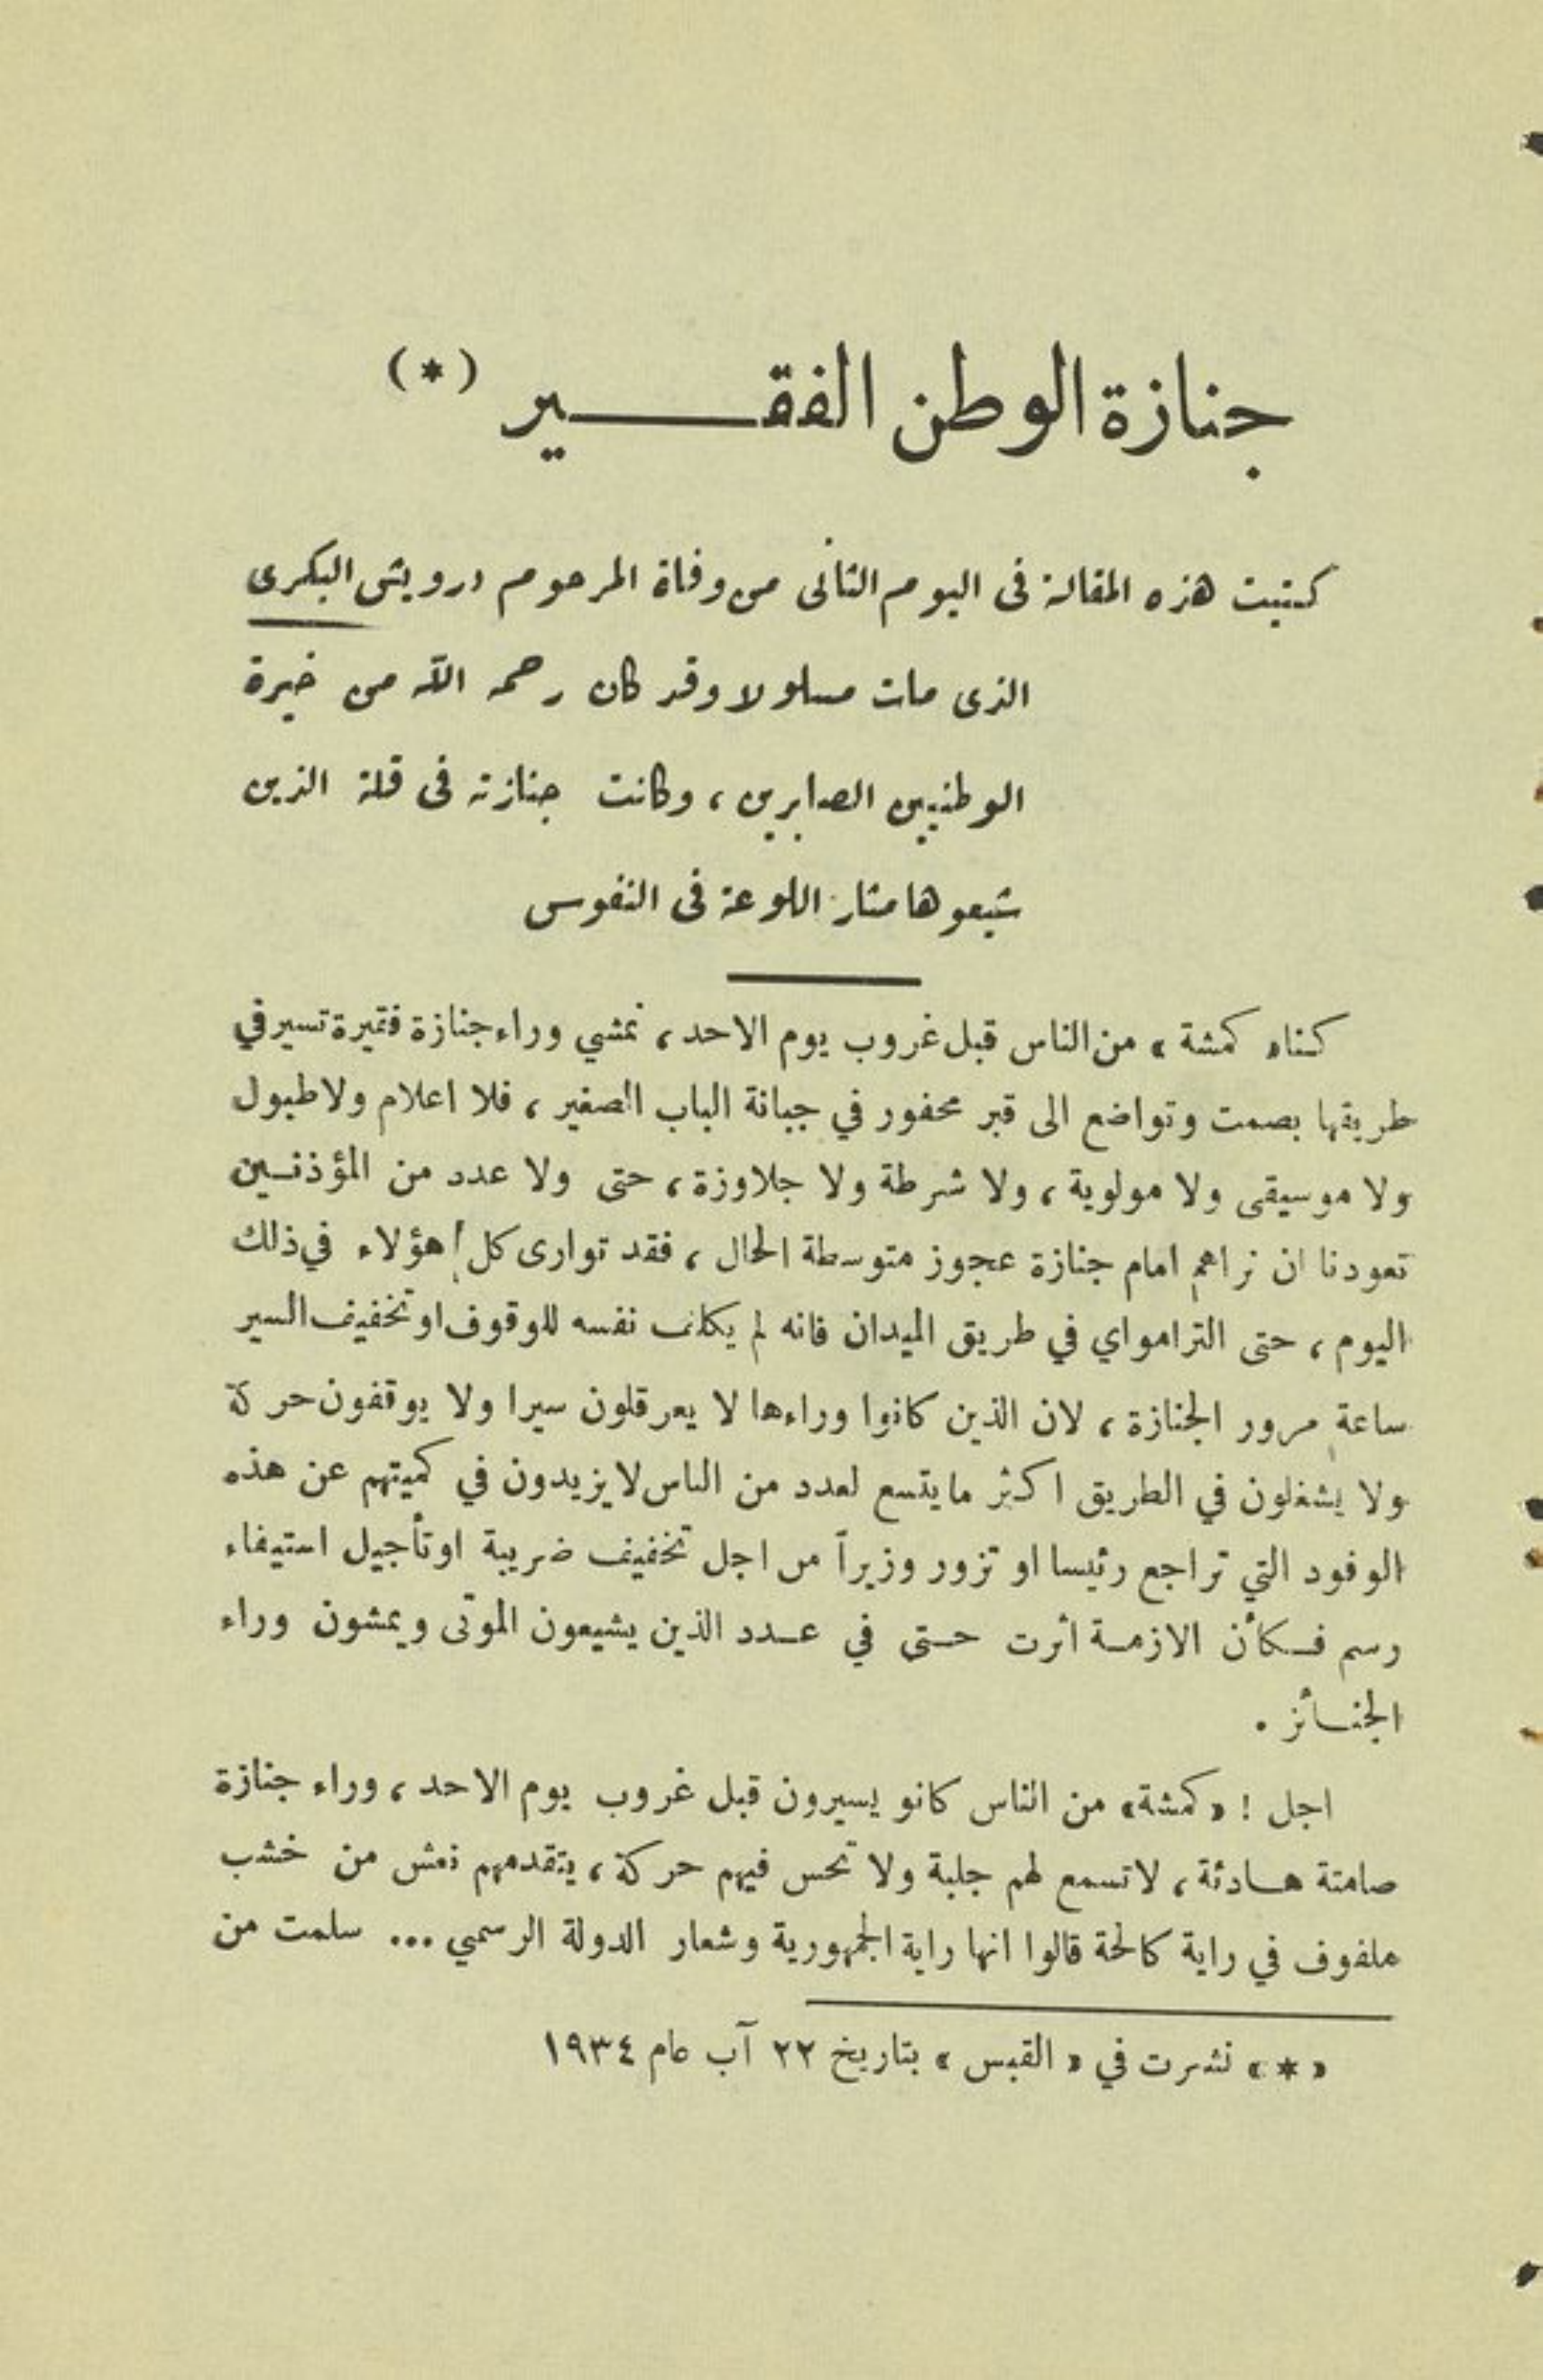 جنازة الوطن الفقـــــير (*)
كتبت هذه المقالة فى اليوم الثانى من وفاة المرحوم درويش البكرى
الذى مات مسلولا وقد كان رحمه الله من خيرة
الوطنيين الصابرين ، وكانت جنازته فى قلة الذين
شيعوها مثار اللوعة فى النفوس
كنا « كمشة » من الناس قبل غروب يوم الاحد ، نمشي وراء جنازة فقيرة تسير في
طريقها بصمت وتواضع الى قبر محفور في جبانة الباب الصغير ، فلا اعلام ولا طبول
ولا موسيقى ولا مولوية ، ولا شرطة ولا جلاوزة ، حتى ولا عدد من المؤذنـين
تعودنا ان نراهم امام جنازة عجوز متوسطة الحال ، فقد توارى كل هؤلاء في ذلك
اليوم ، حتى التراموای في طريق الميدان فانه لم يكلف نفسه للوقوف او تخفيف السير
ساعة مرور الجنازة ، لان الذين كانوا وراءها لا يعرقلون سيرا ولا يوقفون حركة
ولا يشغلون في الطريق اكثر ما يتسع لعدد من الناس لا يزيدون في كميتهم عن هذه
الوفود التي تراجع رئيسا او تزور وزيراً من اجل تخفيف ضريبة او تأجيل استيفاء
رسم فـكأن الازمـة اثرت حـتى في عـدد الذين يشيعون الموتى ويمشون وراء
الجنـائز .
اجل ! «كمشة» من الناس كانو يسيرون قبل غروب يوم الاحد ، وراء جنازة
صامتة هـادئة ، لا تسمع لهم جلبة ولا تحس فيهم حركة ، يتقدمهم نعش من خشب
ملفوف في راية كالحة قالوا انها راية الجمهورية وشعار الدولة الرسمي ... سلمت من
« * » نشرت في « القبس » بتاريخ ٢٢ آب عام ١٩٣٤